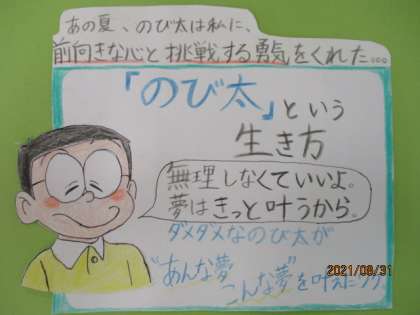 あの夏、のび太は私に、
前向きな心と挑戦する勇気をくれた...
「のび太」という
生き方
無理しなくていいよ。
夢はきっと叶うから。
ダメダメなのび太が
"あんな夢
こんな夢"を叶えに
2021/08/31